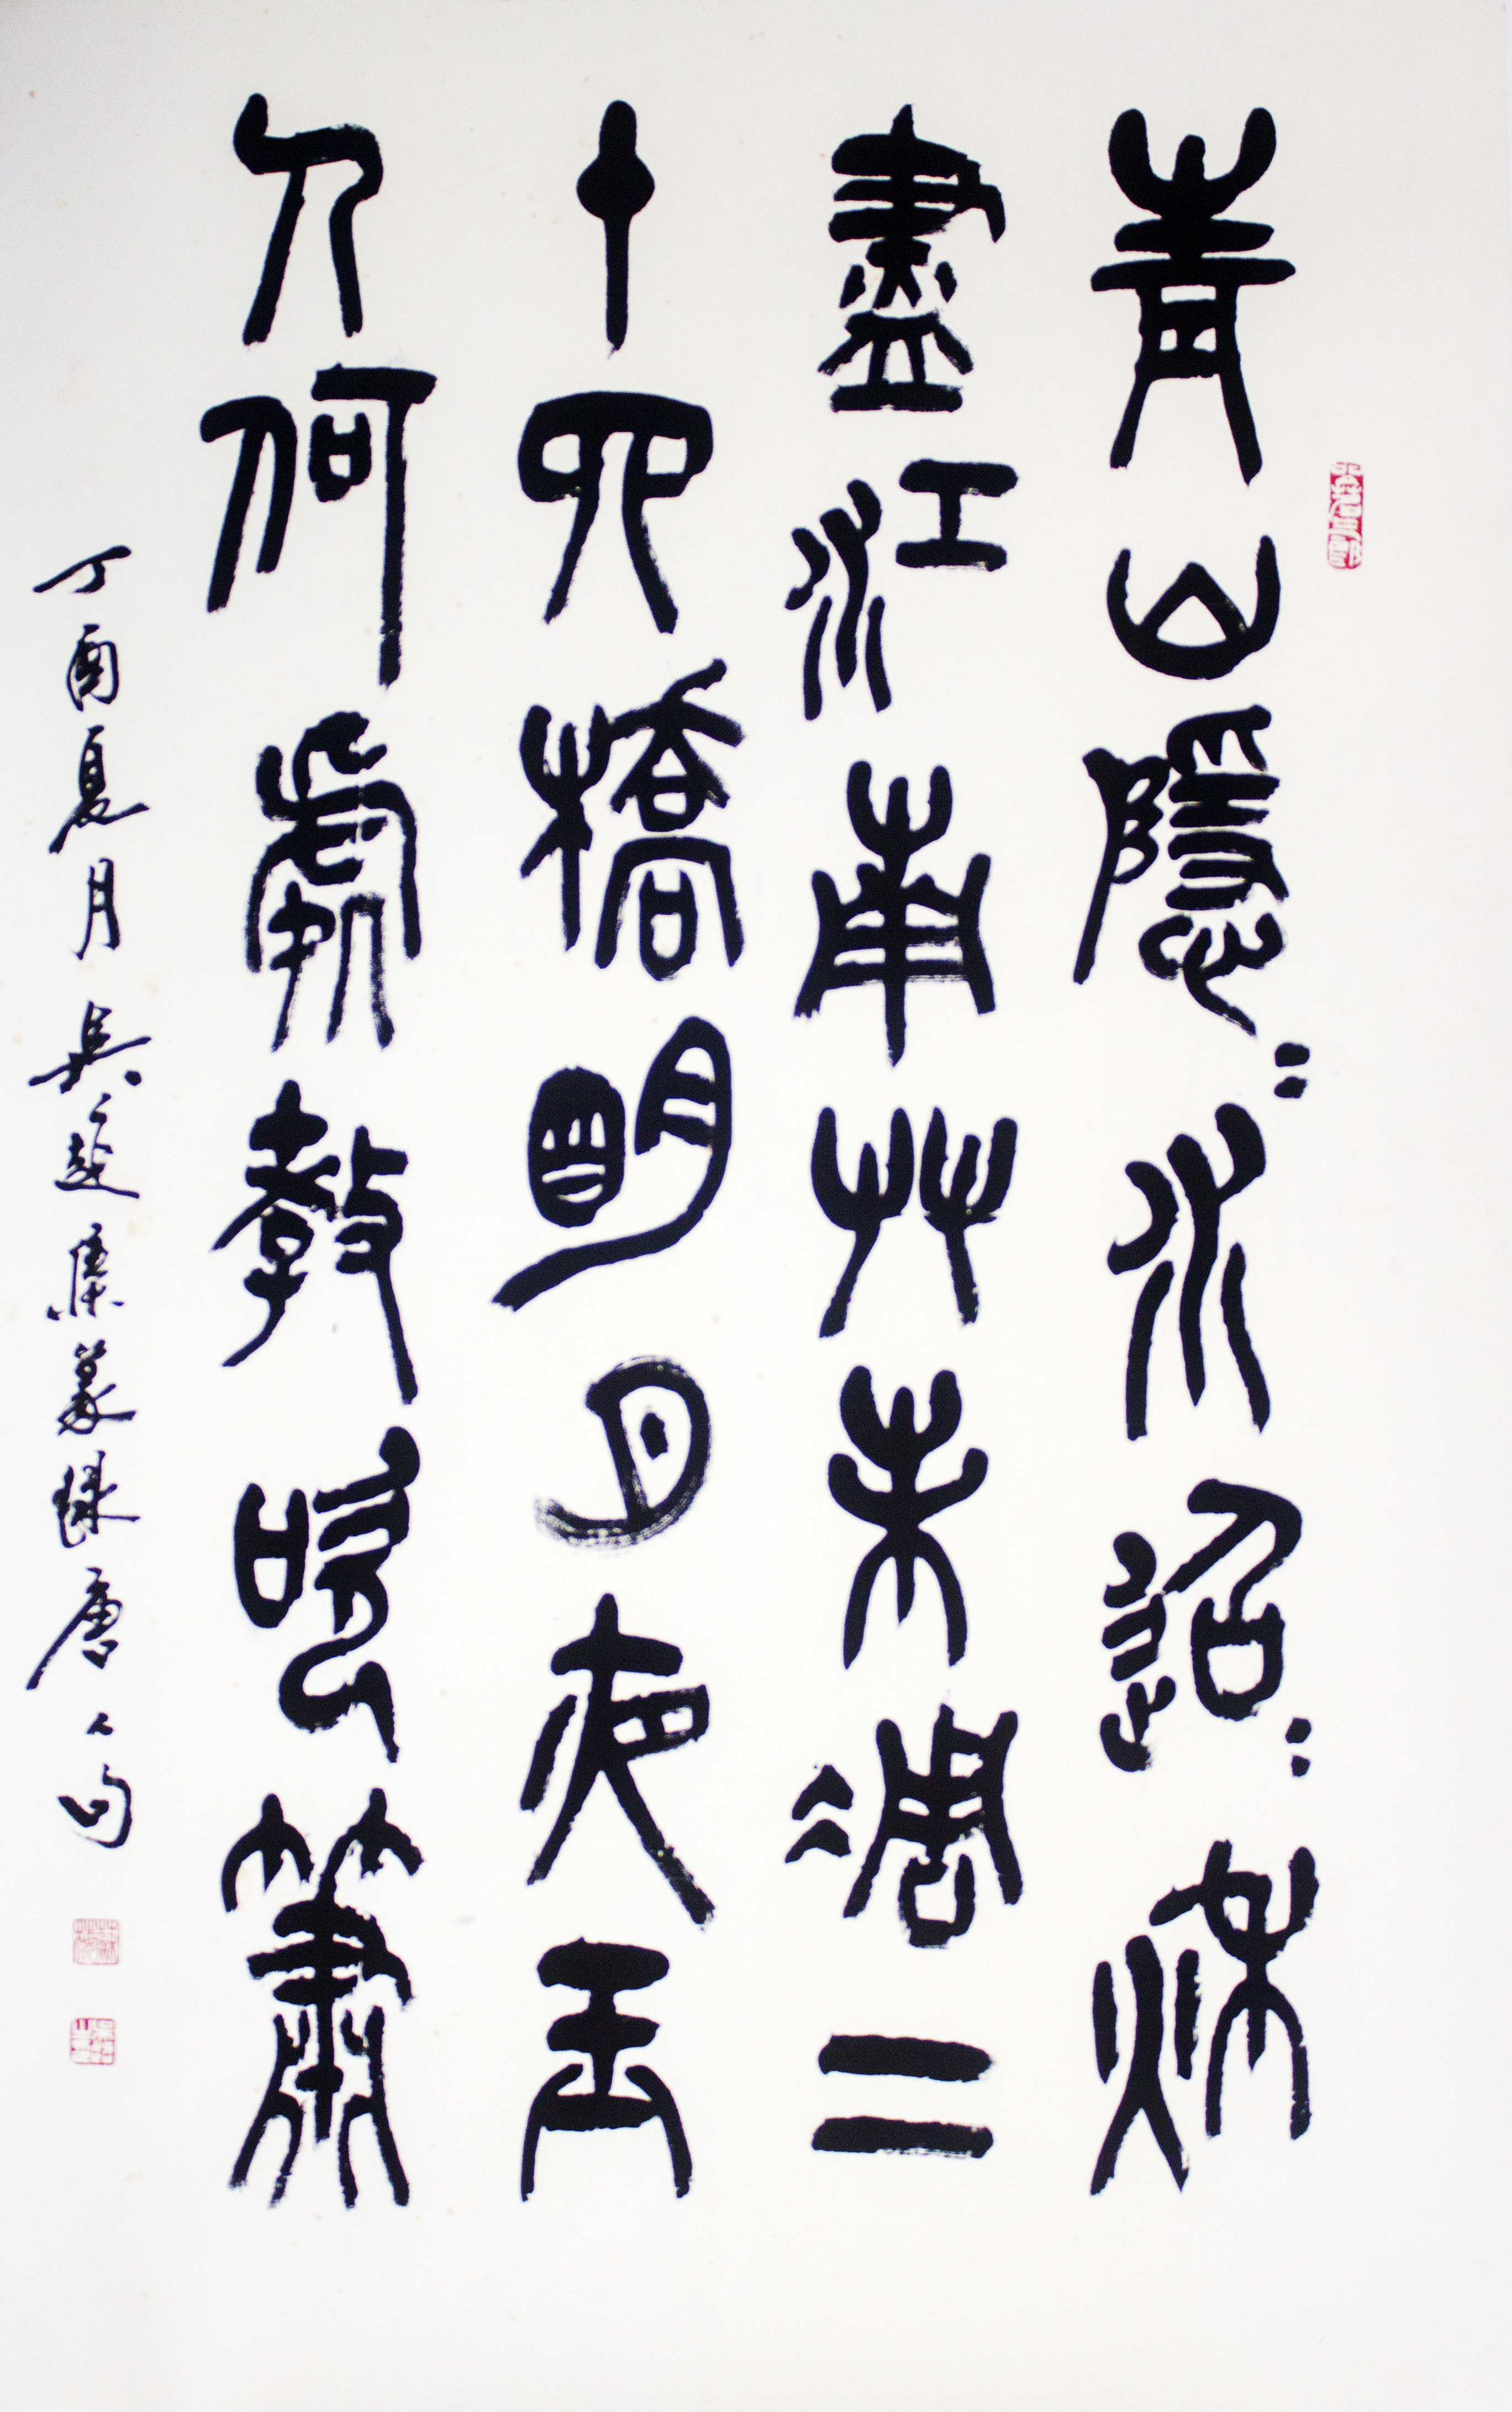 青山隱〻水迢〻秋
盡江南艸未凋二
十四橋明月夜玉
人何處教吹簫
丁酉夏月吳集篆録唐人句